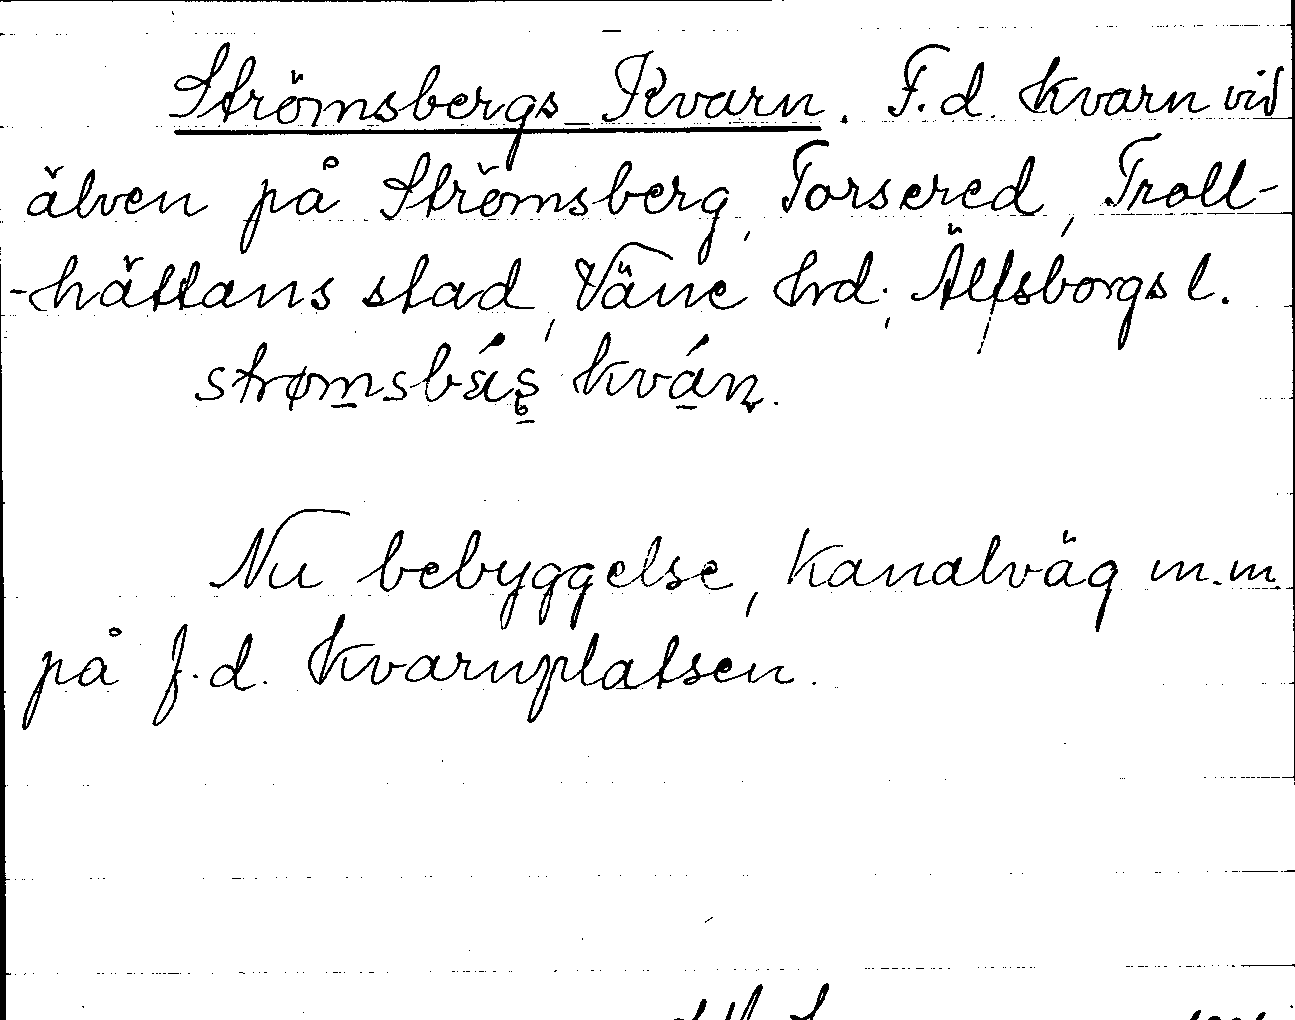 Strömsbergs Kvarn. F.d. kvarn vid
älven på Strömsberg, Torsered, Troll-
-hättans stad, Väne hrd, Älfsborgs l.
strømsbás kván.
Nu bebyggelse, Kanalväg m.m.
på f.d. kvarnplatsen.